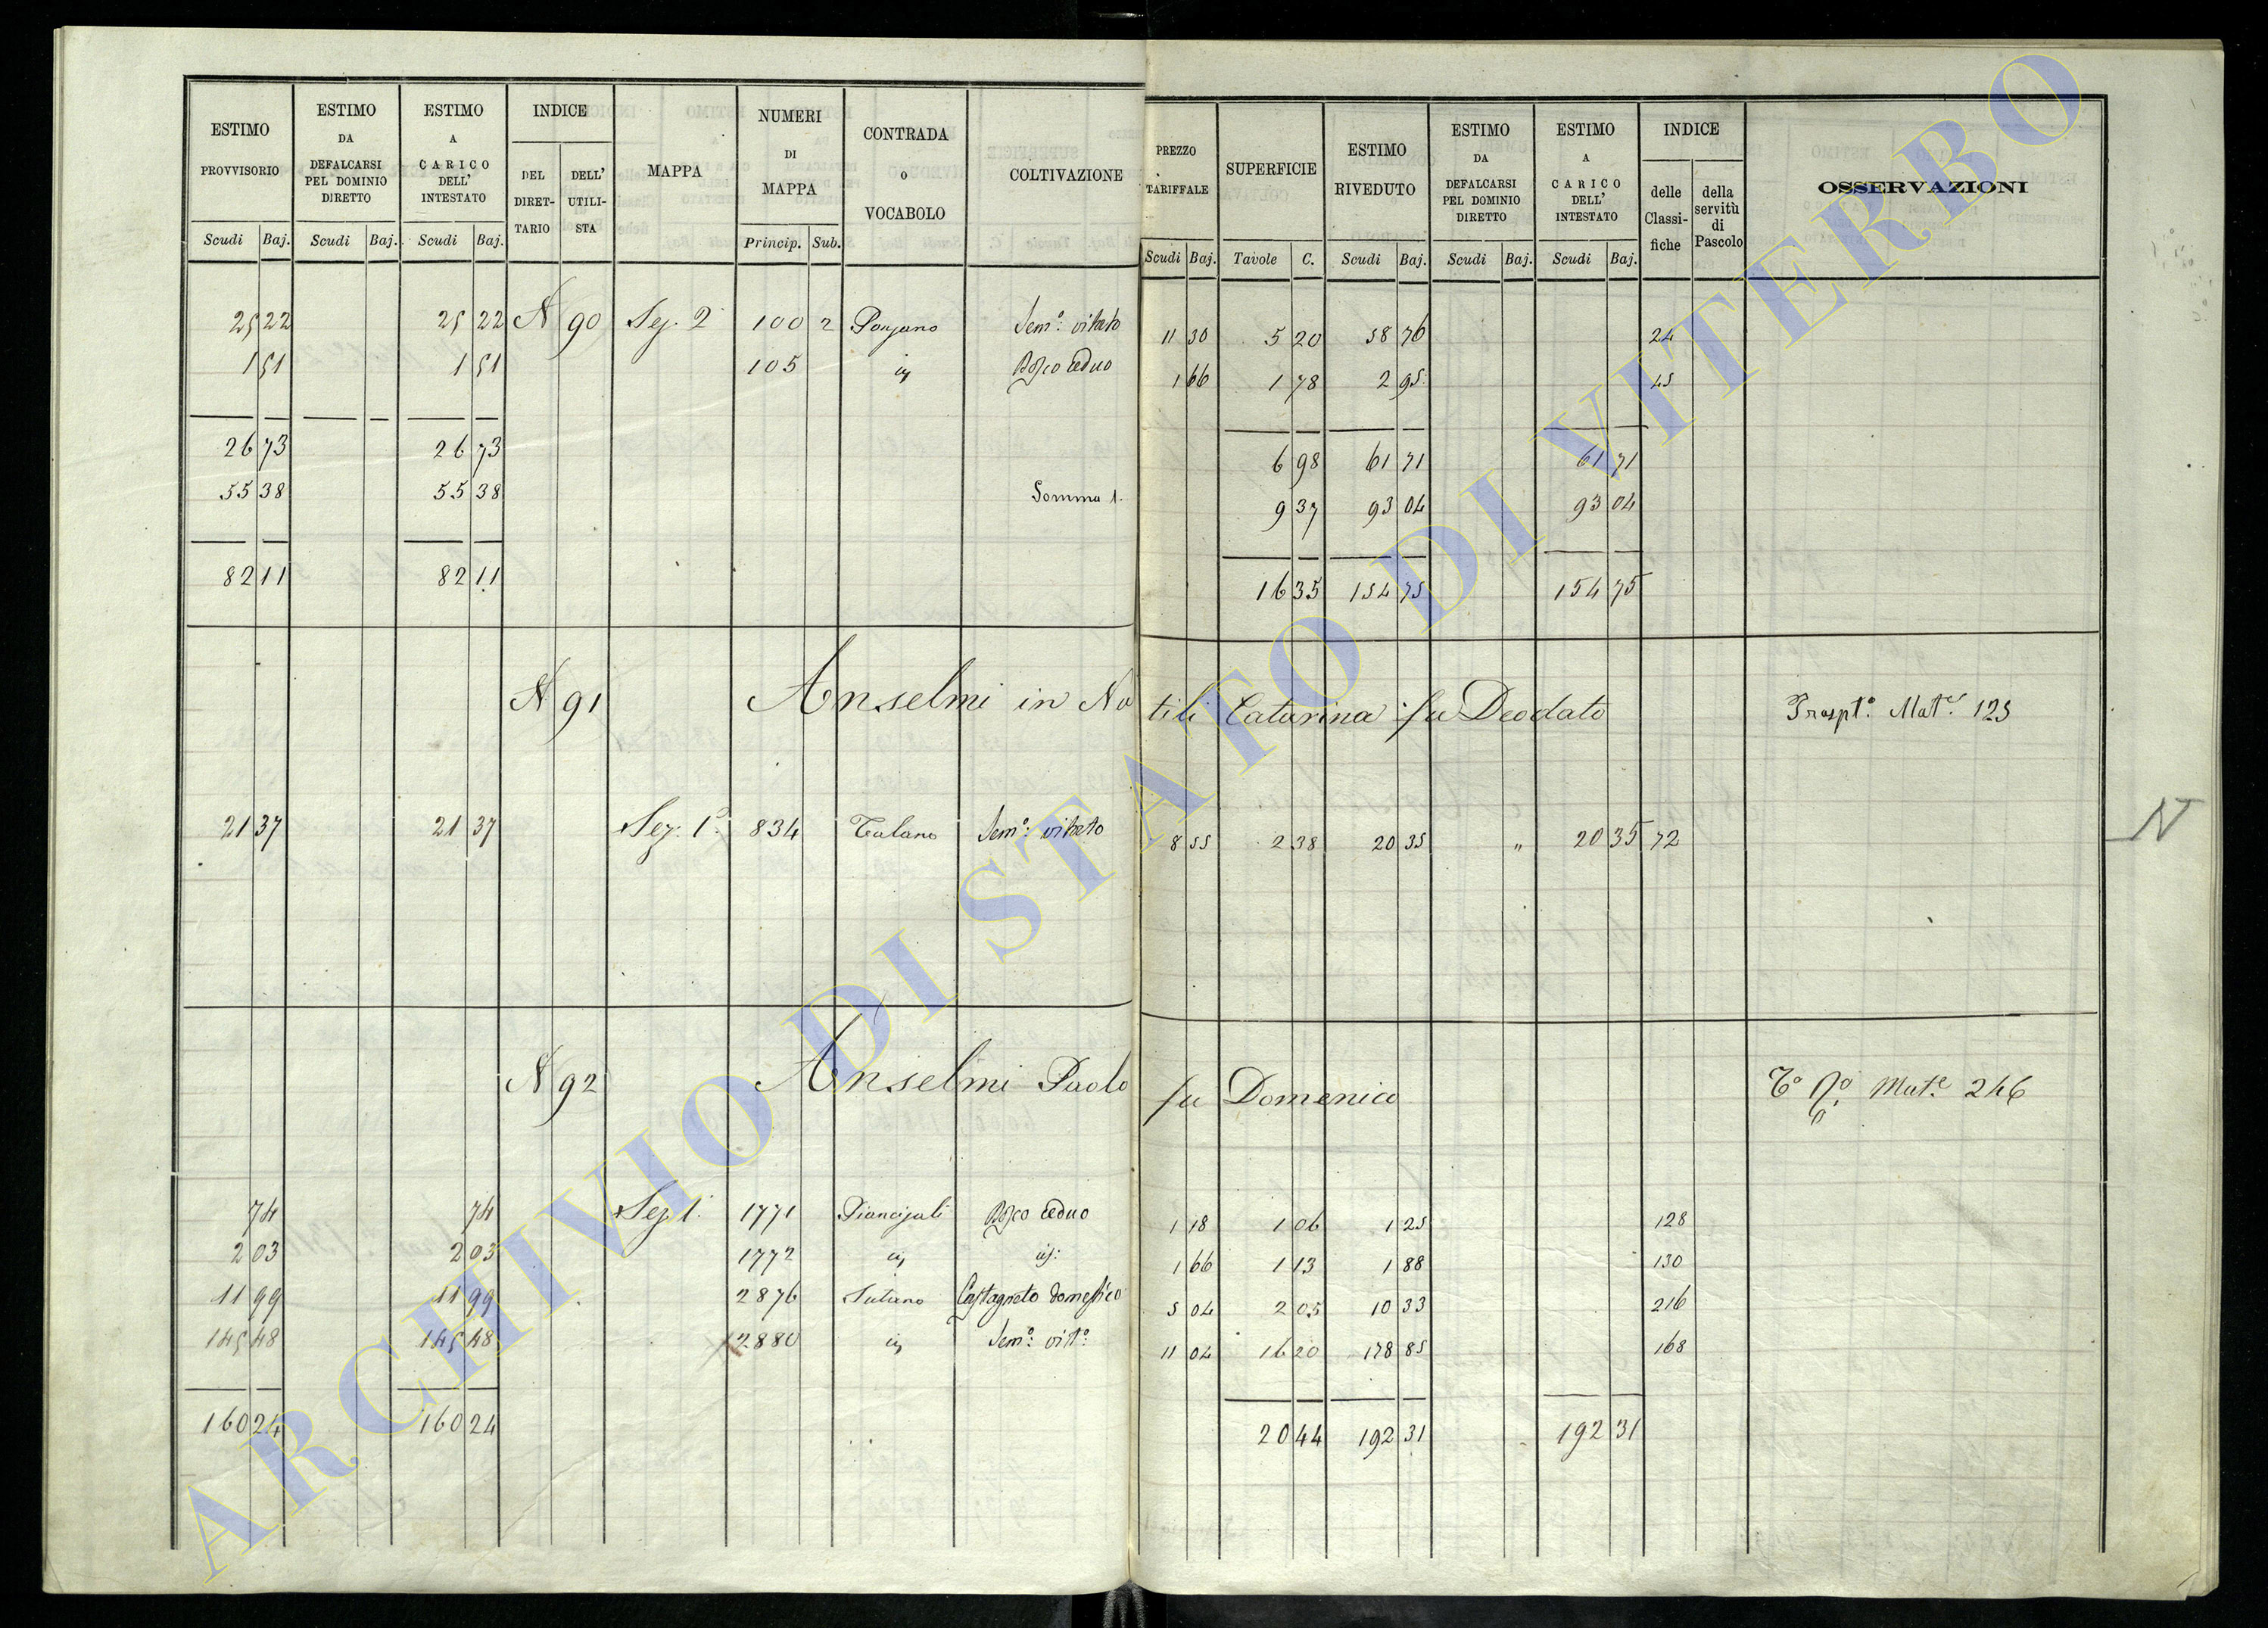 ESTIMO PROVVISORIO | ESTIMO DA DEFALCARSI PEL DOMINIO DIRETTO | ESTIMO A CARICO DELL' INTESTATO | INDICE | MAPPA | NUMERI DI MAPPA | CONTRADA O VOCABOLO | COLTIVAZIONE | PREZZO TARIFFALE | SUPERFICIE | ESTIMO RIVEDUTO | ESTIMO DA DEFALCARSI PEL DOMINIO DIRETTO | ESTIMO A CARICO DELL' INTESTATO | INDICE | OSSERVAZIONI
DEL DIRET-TARIO | DELL' UTILI-STA | delle Classi-fiche | della servitù di Pascolo
Scudi | Baj. | Scudi | Baj. | Scudi | Baj. | Princip. | Sub. | Scudi | Baj. | Tavole | C. | Scudi | Baj. | Scudi | Baj. | Scudi | Baj.
25 22 | 25 22 | N 90 | Sez. 2 | 100 | 2 | Ponzano | Sem.º vitato | 11 30 | 5 20 | 58 76 | 24
1 51 | 1 51 | 105 | id | Bosco ceduo | 1 66 | 1 78 | 2 95 | 45
26 73 | 26 73 | 6 98 | 61 71 | 61 71
55 38 | 55 38 | Somma 1. | 9 37 | 93 04 | 93 04
82 11 | 82 11 | 16 35 | 154 75 | 154 75
N 91 | Anselmi in Natili Catarina fu Deodato | Trasptº. Mat.e 125
21 37 | 21 37 | Sez. 1ª | 834 | Talano | Sem.º vitato | 8 55 | 2 38 | 20 35 | " | 20 35 | 72
N
N 92 | Anselmi Paolo fu Domenico | Mat.e 246
74 | 74 | Sez 1. | 1771 | Piancajali | Bosco ceduo | 1 18 | 1 06 | 1 25 | 128
2 03 | 2 03 | 1772 | id | id: | 1 66 | 1 13 | 1 88 | 130
11 99 | 11 99 | 2876 | Sutano | Castagneto domestico | 5 04 | 2 05 | 10 33 | 216
145 48 | 145 48 | 2880 | id | Sem.º vit.º | 11 04 | 16 20 | 178 85 | 168
160 24 | 160 24 | 20 44 | 192 31 | 192 31
ARCHIVIO DI STATO DI VITERBO